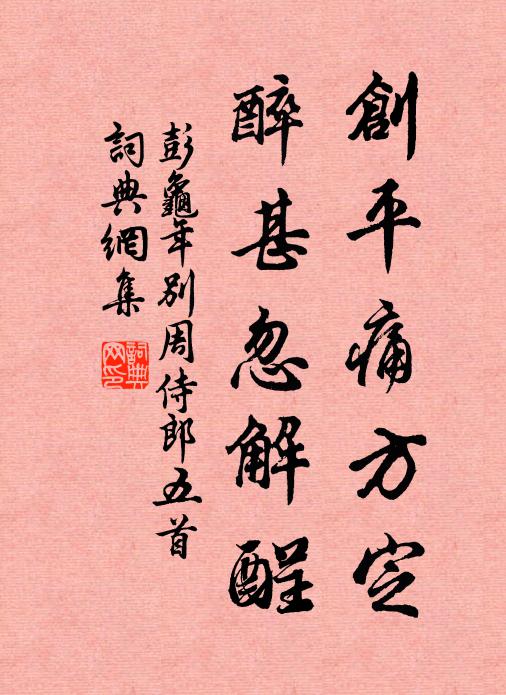 創平痛方定
醉甚忽解酲
彭龜年別周侍郎五首
詞典網集
詞典網印